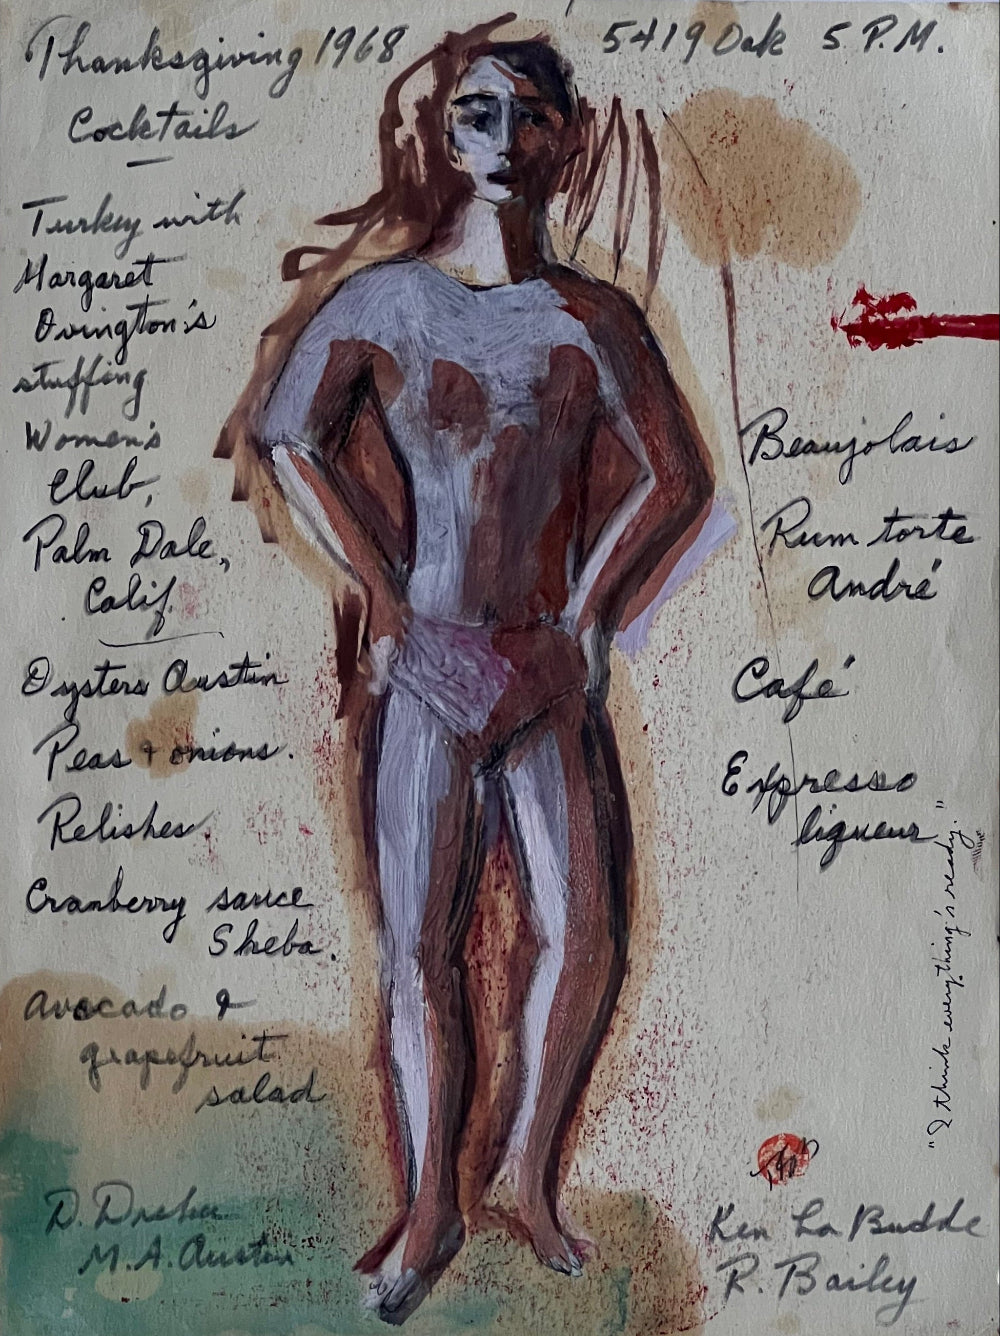 Thanksgiving 1968
5419 Oak 5 P.M.
Cocktails
Turkey with
Margaret
Ovington's
stuffing
Women's
Club,
Palm Dale,
Calif.
Oysters Austin
Peas + onions.
Relishes.
Cranberry sauce
Sheba.
Avocado &
grapefruit
salad
D.
M.A. Austin
Beaujolais
Rum torte
André
Café
Expresso
liqueur
"I think everything's ready."
Ken La Budde
R. Bailey